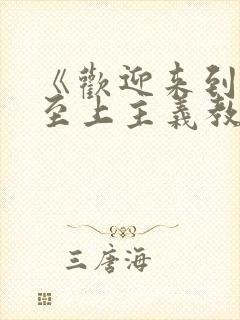 《歡迎来到
至上主義教
三唐海